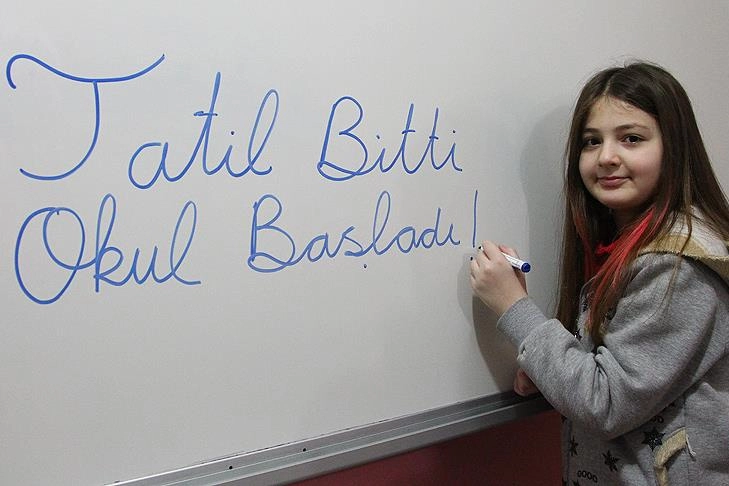 Tatil Bitti
Okul Başladı!
GOOD